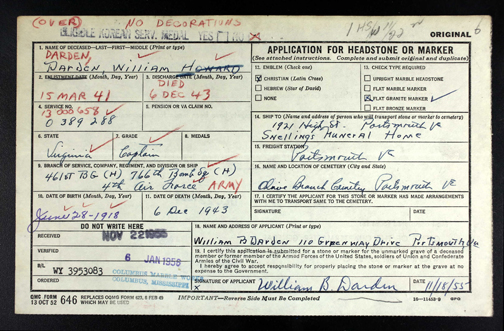 (OVER) NO DECORATIONS
ELIGIBLE KOREAN SERV. MEDAL YES NO
ORIGINAL
1. NAME OF DECEASED—LAST—FIRST—MIDDLE (Print or type)
DARDEN,
Darden, William Howard
2. ENLISTMENT DATE (Month, Day, Year)
15 MAR 41
3. DISCHARGE DATE (Month, Day, Year)
DIED
6 DEC 43
4. SERVICE NO.
13 000 658
0 389 288
5. PENSION OR VA CLAIM NO.
6. STATE
Virginia
7. GRADE
Captain
8. MEDALS
9. BRANCH OF SERVICE, COMPANY, REGIMENT, AND DIVISION OR SHIP
461st BG (H) 766th Bomb Sq (H)
4th Air Force ARMY
10. DATE OF BIRTH (Month, Day, Year)
June 28-1918
11. DATE OF DEATH (Month, Day, Year)
6 Dec 1943
APPLICATION FOR HEADSTONE OR MARKER
(See attached instructions. Complete and submit original and duplicate)
12. EMBLEM (Check one)
CHRISTIAN (Latin Cross)
HEBREW (Star of David)
NONE
13. CHECK TYPE REQUIRED
UPRIGHT MARBLE HEADSTONE
FLAT MARBLE MARKER
FLAT GRANITE MARKER
FLAT BRONZE MARKER
14. SHIP TO (Name and address of person who will transport stone or marker to cemetery)
1921 High St. Portsmouth Va
Snellings Funeral Home
15. FREIGHT STATION
Portsmouth Va
16. NAME AND LOCATION OF CEMETERY (City and State)
Olive Branch Cemetery Portsmouth Va
17. I CERTIFY THE APPLICANT FOR THIS STONE OR MARKER HAS MADE ARRANGEMENTS WITH ME TO TRANSPORT SAME TO THE CEMETERY.
SIGNATURE
DATE
DO NOT WRITE HERE
RECEIVED
NOV 22 1955
VERIFIED
6 JAN 1956
B/L
WY 3953083
COLUMBUS MARBLE WORKS
COLUMBUS, MISSISSIPPI
18. NAME AND ADDRESS OF APPLICANT (Print or type)
William B Darden 110 Greenway Drive Portsmouth Va
I certify this application is submitted for a stone or marker for the unmarked grave of a deceased member or former member of the Armed Forces of the United States, soldiers of Union and Confederate Armies of the Civil War.
I hereby agree to accept responsibility for properly placing the stone or marker at the grave at no expense to the Government.
SIGNATURE OF APPLICANT
William B. Darden
DATE
11/18/55
QMC FORM
13 OCT 52 646
REPLACES OQMG FORM 623, 8 FEB 49
WHICH MAY BE USED
IMPORTANT—Reverse Side Must Be Completed
16—11452-9 GPO